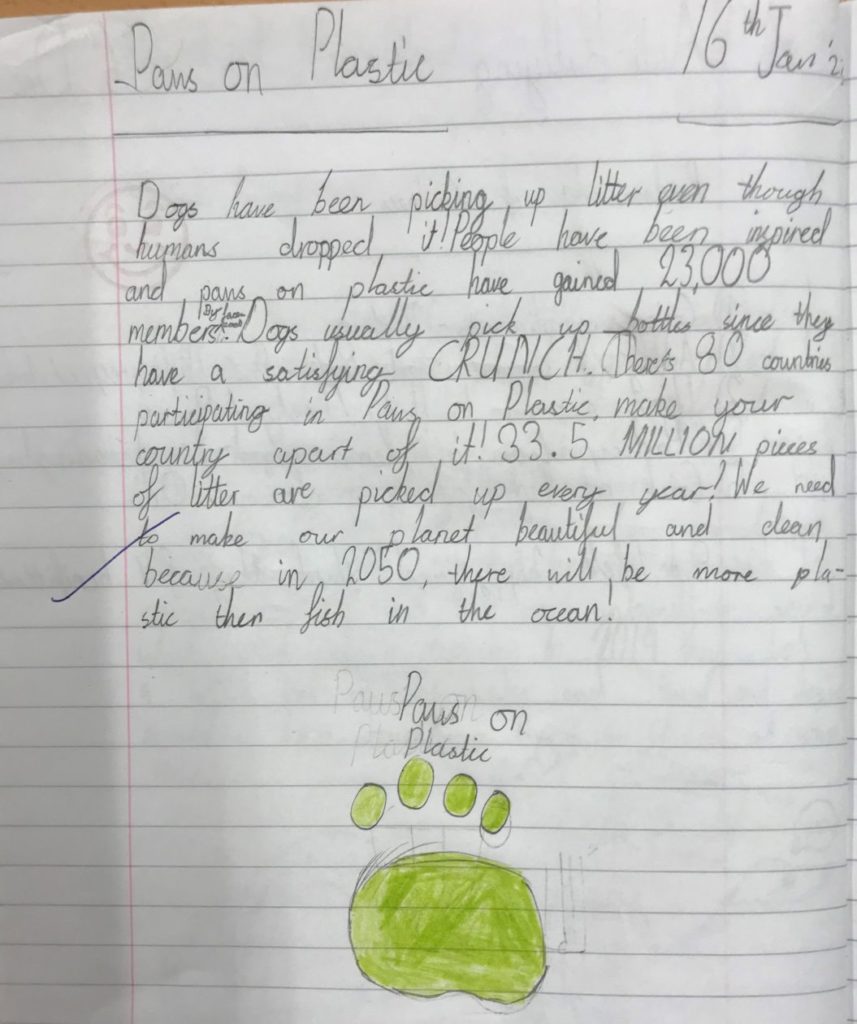 Paws on Plastic 16th Jan '2
Dogs have been picking up litter even though
humans dropped it! People have been inspired
and paws on plastic have gained 23,000
members! Dogs usually pick up bottles since they
have a satisfying CRUNCH. There's 80 countries
participating in Paws on Plastic, make your
country apart of it! 33.5 MILLION pieces
of litter are picked up every year! We need
to make our planet beautiful and clean
because in 2050, there will be more pla-
stic then fish in the ocean!
Paws on
Plastic